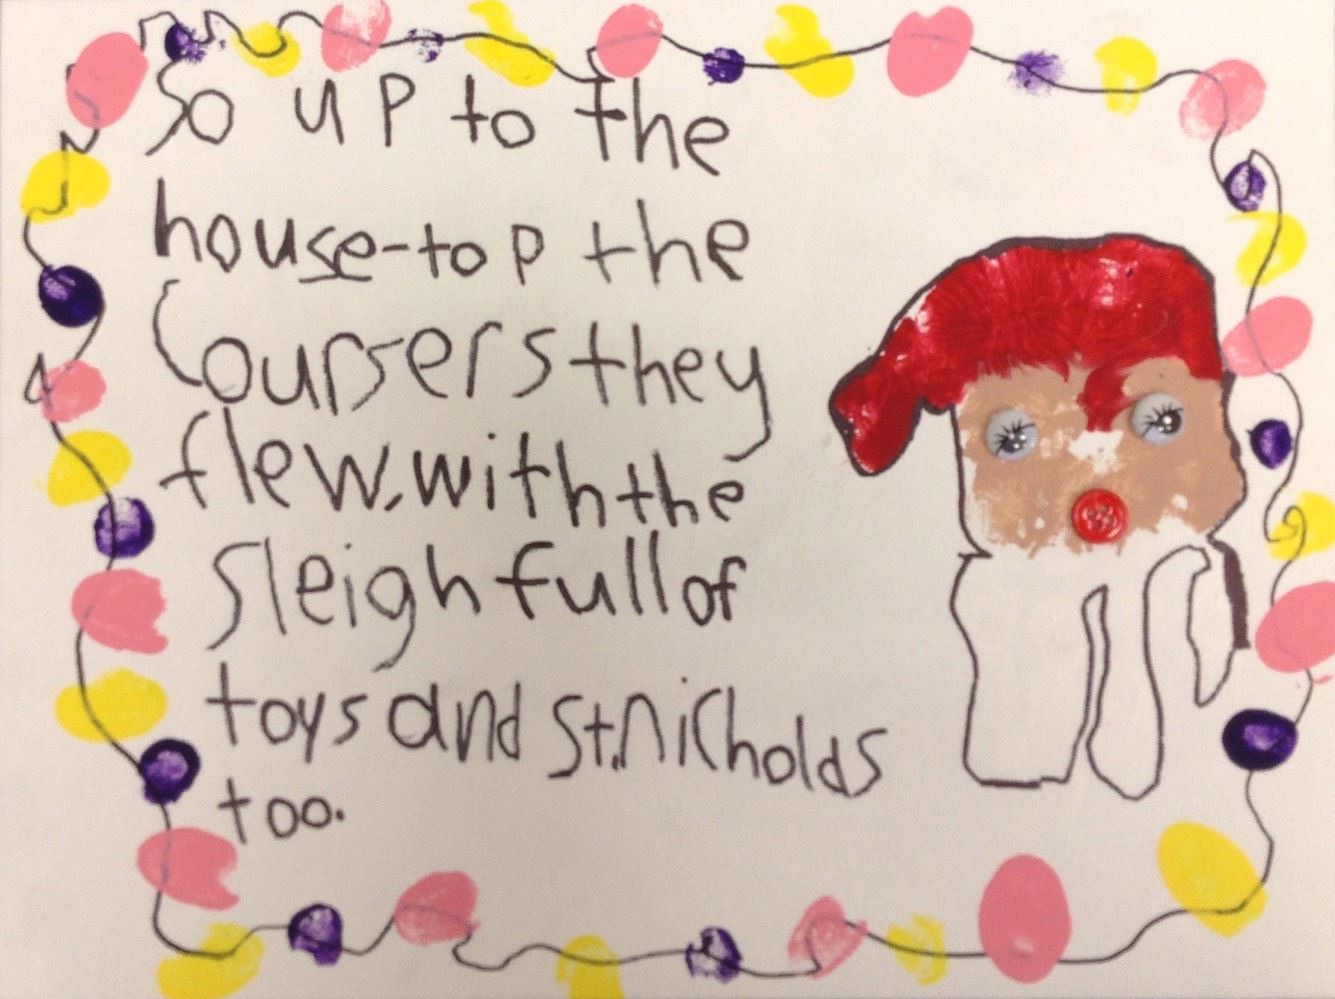 So up to the
house-top the
Coursers they
flew, with the
sleigh full of
toys and St. Nicholas
too.